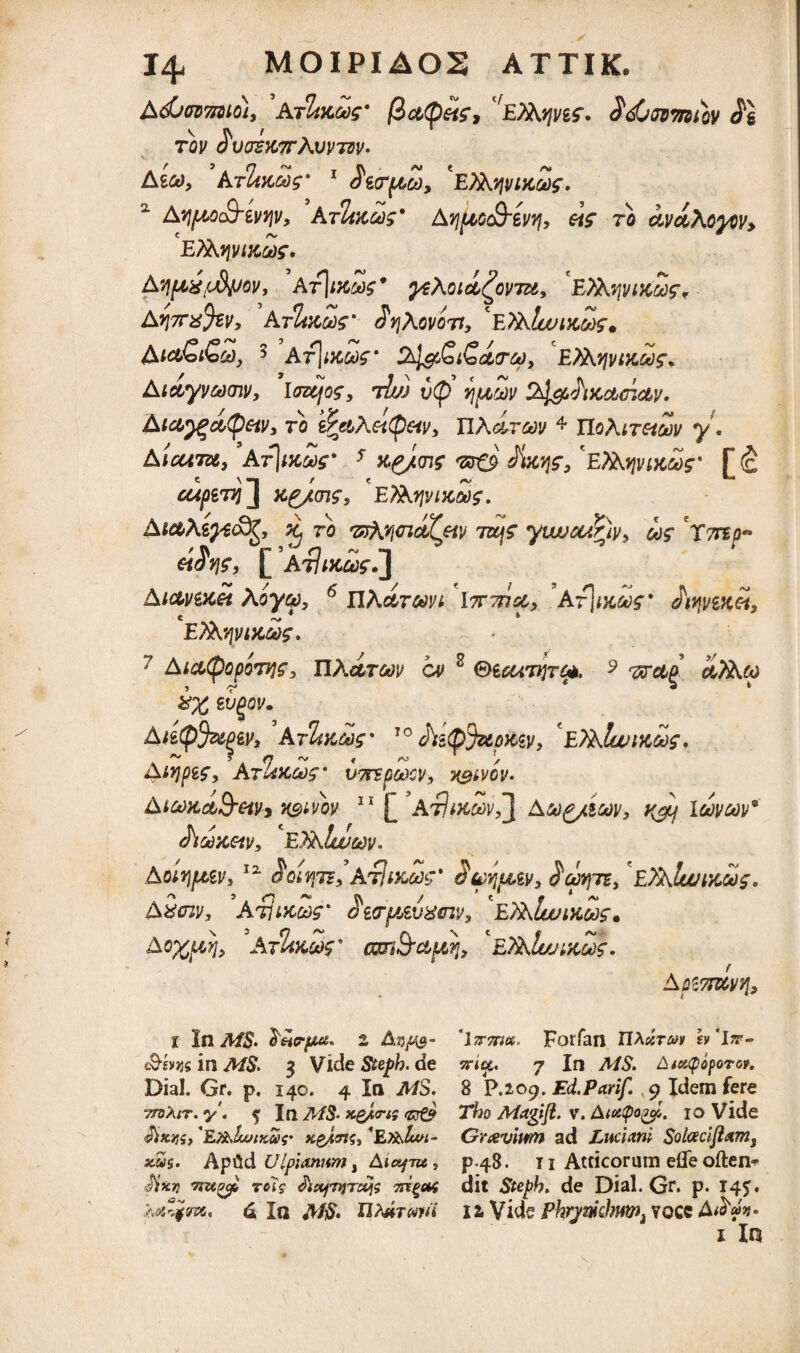 14 ΜΟΙΡΙΔΟΣ ΑΤΤΙΚ.
Δευσοποιοὶ, Ἀττικῶς· βαφεῖς, Ἕλληνες. δευσοποιὸν δὲ
τὸν δυσέκπλυντον.
Δέω, Ἀττικῶς· 1 δεσμῶ, Ἑλληνικῶς.
2 Δημοσθένην, Ἀττικῶς· Δημοσθένη, εἰς τὸ ἀνάλογον,
Ἑλληνικῶς.
Δημούμενον, Ἀττικῶς· γελοιάζοντα, Ἑλληνικῶς.
Δήπουθεν, Ἀττικῶς· δηλονότι, Ἑλληνικῶς.
Διαβιβῶ, 3 Ἀττικῶς· διαβιβάσω, Ἑλληνικῶς.
Διάγνωσιν, Ἰσαῖος, τὴν ὑφ' ἡμῶν διαδικασίαν.
Διαγράφειν, τὸ ἐξαλείφειν, Πλάτων 4 Πολιτειῶν γʹ.
Δίαιτα, Ἀττικῶς· 5 κρίσις πρὸ δίκης, Ἑλληνικῶς· [ἢ
αἱρετὴ] κρίσις, Ἑλληνικῶς.
Διαλέγεσθαι, καὶ τὸ πλησιάζειν ταῖς γυναιξὶν, ὡς Ὑπερ-
είδης, [Ἀττικῶς.]
Διανεκεῖ λόγῳ, 6 Πλάτωνι Ἱππίᾳ, Ἀττικῶς· διηνεκεῖ,
Ἑλληνικῶς.
7 Διαφορότης, Πλάτων ἐν 8 Θεαιτήτῳ. 9 παρ' ἄλλῳ
οὐχ εὗρον.
Διέφθαρεν, Ἀττικῶς· 10 διέφθαρκεν, Ἑλληνικῶς.
Διῆρες, Ἀττικῶς· ὑπερῶον, κοινόν.
Διωκάθειν, κοινὸν 11 [Ἀττικῶν,] Δωριέων, καὶ Ἰώνων·
διώκειν, Ἑλλήνων.
Δοίημεν, 12 δοίητε, Ἀττικῶς· δώημεν, δώητε, Ἑλληνικῶς.
Δοῦσιν, Ἀττικῶς· δεσμεύουσιν, Ἑλληνικῶς.
Δοχμὴ, Ἀττικῶς· σπιθαμὴ, Ἑλληνικῶς.
Δρεπάνη,
1 In MS. δεῖσμα. 2 Δημο-
σθένης in MS. 3 Vide Steph. de
Dial. Gr. p. 140. 4 In MS.
πολιτ. γʹ. 5 In MS. κρίσις πρὸ
δίκης, Ἑλληνικῶς· κρίσις, Ἑλληνι-
κῶς. Apud Ulpianum, Δίαιτα,
δίκη παρὰ τοῖς διαιτηταῖς πέρας
6 In MS. Πλάτωνι
Ἱππία. Forsan Πλάτων ἐν Ἱπ-
πίᾳ. 7 In MS. Διαφόροτον.
8 P.209. Ed.Paris. 9 Idem fere
Tho Magist. v. Διαφορά. 10 Vide
Grævium ad Luciani Solœcistam,
p.48. 11 Atticorum esse osten-
dit Steph. de Dial. Gr. p. 145.
12 Vide Phrynichum, voce Διδῴη.
1 In